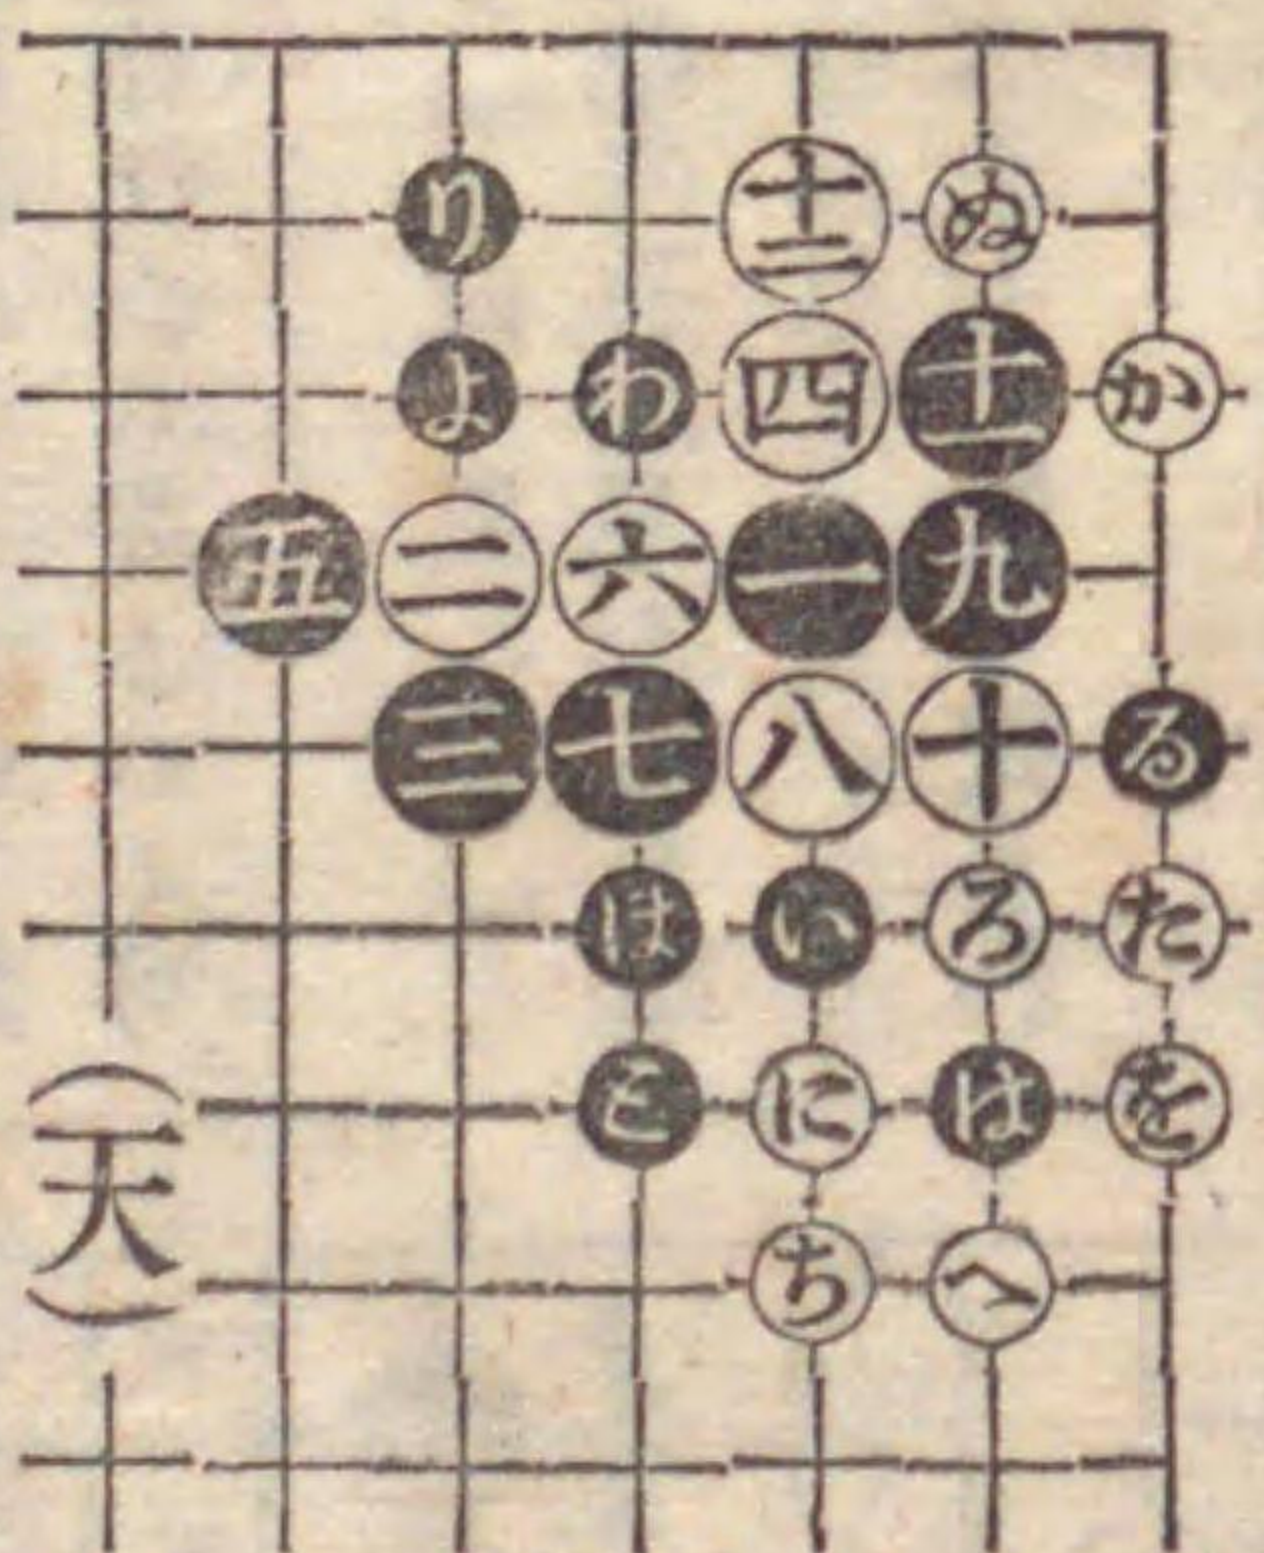 り 十二 ぬ
よ わ 四 十一 か
五 二 六 一 九
三 七 八 十 る
ほ い ろ た
と に は を
(天)
ち へ